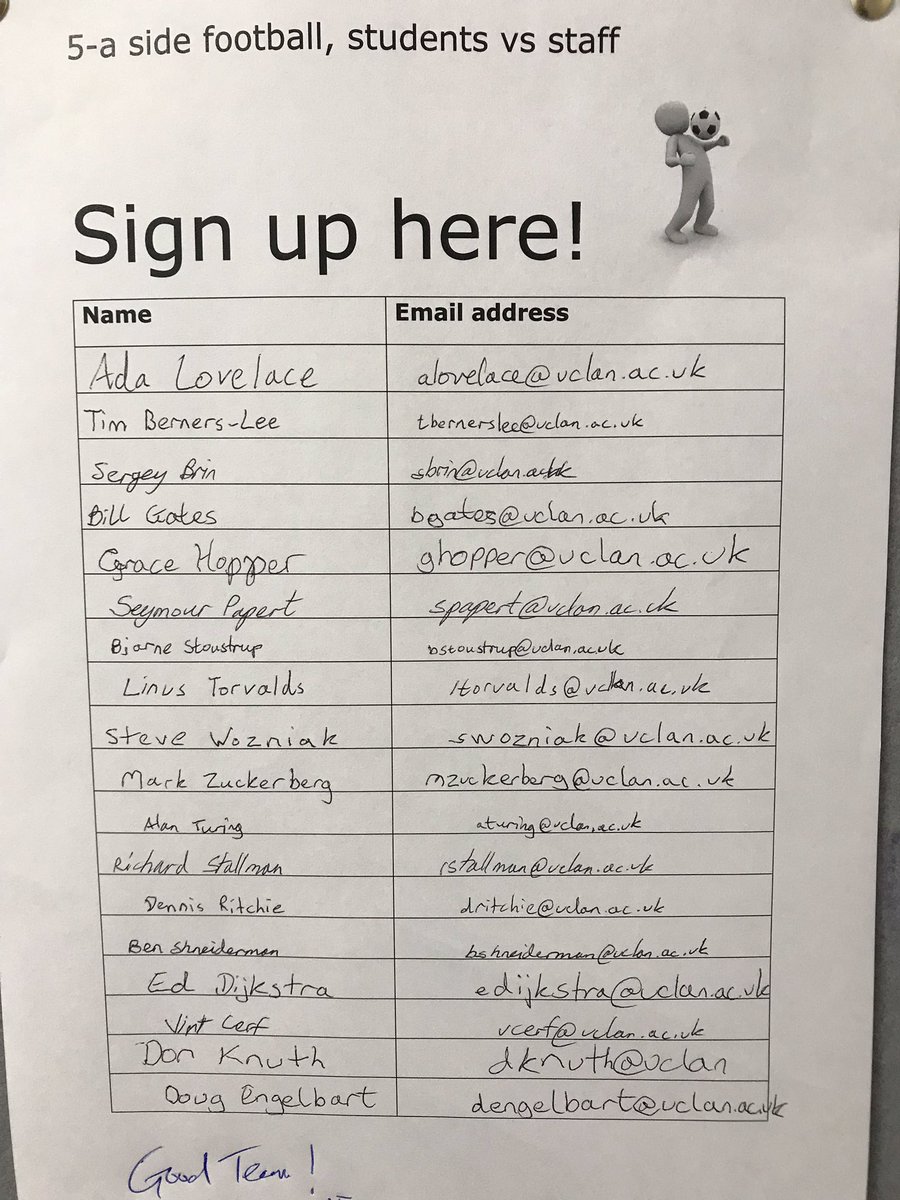 5-a side football, students vs staff
Sign up here!
Name Email address
Ada Lovelace alovelace@uclan.ac.uk
Tim Berners-Lee tbernerslee@uclan.ac.uk
Sergey Brin sbrin@uclan.ac.uk
Bill Gates bgates@uclan.ac.uk
Grace Hopper ghopper@uclan.ac.uk
Seymour Papert spapert@uclan.ac.uk
Bjarne Stoustrup bstoustrup@uclan.ac.uk
Linus Torvalds ltorvalds@uclan.ac.uk
Steve Wozniak swozniak@uclan.ac.uk
Mark Zuckerberg mzuckerberg@uclan.ac.uk
Alan Turing aturing@uclan.ac.uk
Richard Stallman rstallman@uclan.ac.uk
Dennis Ritchie dritchie@uclan.ac.uk
Ben Shneiderman bshneiderman@uclan.ac.uk
Ed Dijkstra edijkstra@uclan.ac.uk
Vint Cerf vcerf@uclan.ac.uk
Don Knuth dknuth@uclan
Doug Engelbart dengelbart@uclan.ac.uk
Good Team!